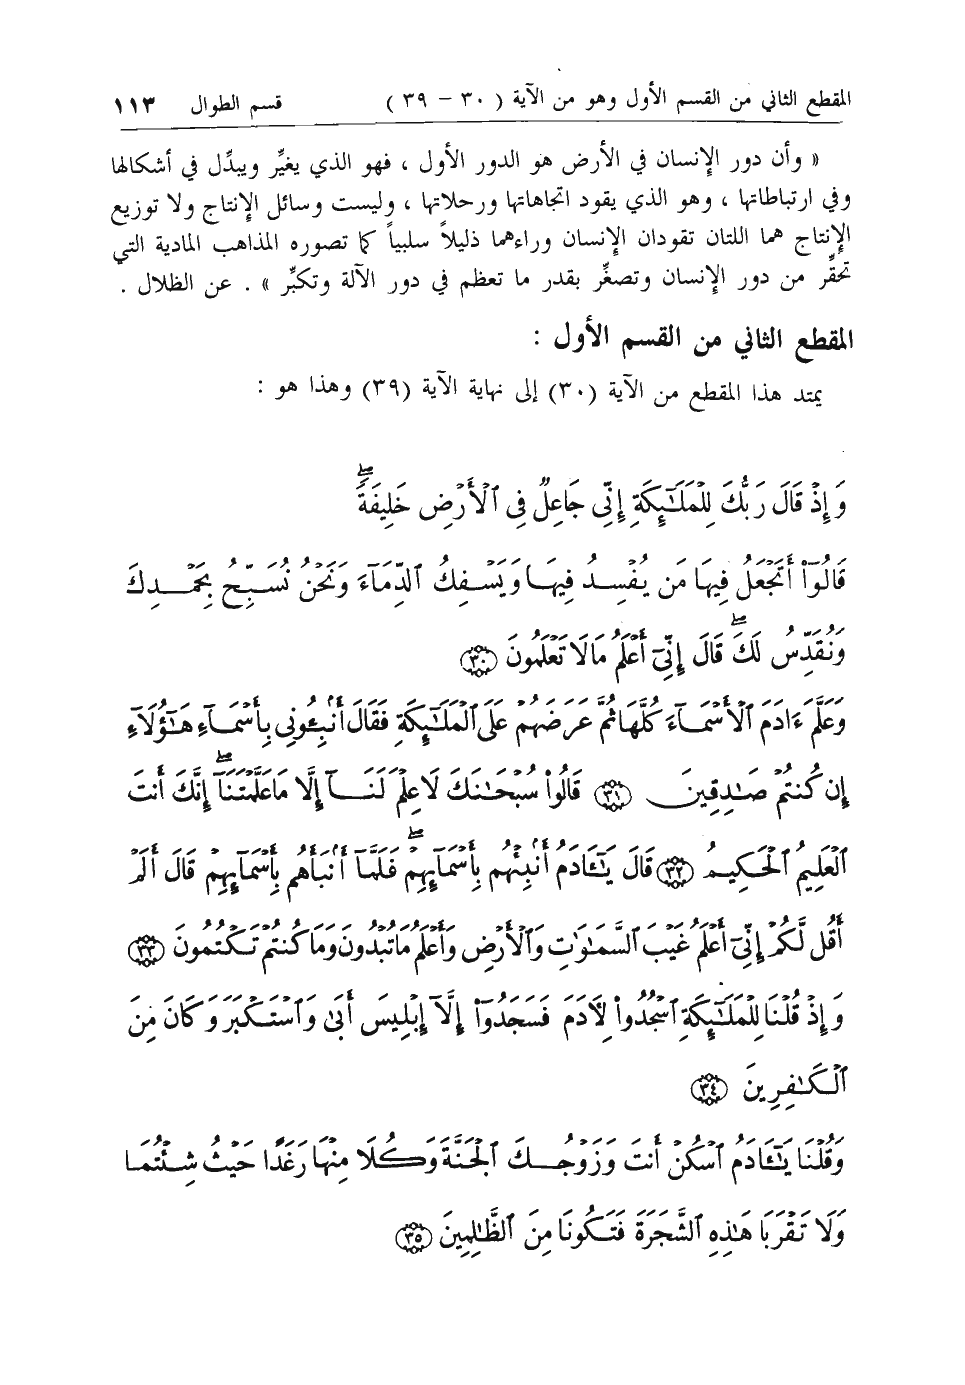 المقطع الثاني من القسم الأول وهو من الآية ( ٣٠ - ٣٩ ) قسم الطوال ١١٣
« وأن دور الإنسان في الأرض هو الدور الأول ، فهو الذي يغيِّر ويبدِّل في أشكالها
وفي ارتباطاتها ، وهو الذي يقود اتجاهاتها ورحلاتها ، وليست وسائل الإنتاج ولا توزيع
الإنتاج هما اللتان تقودان الإنسان وراءهما ذليلاً سلبياً كما تصوره المذاهب المادية التي
تحقِّر من دور الإنسان وتصغِّر بقدر ما تعظم في دور الآلة وتكبِّر » . عن الظلال .
المقطع الثاني من القسم الأول :
يمتد هذا المقطع من الآية (٣٠) إلى نهاية الآية (٣٩) وهذا هو :
وَإِذْ قَالَ رَبُّكَ لِلْمَلَٰٓئِكَةِ إِنِّى جَاعِلٌ فِى ٱلْأَرْضِ خَلِيفَةً ۖ
قَالُوٓا۟ أَتَجْعَلُ فِيهَا مَن يُفْسِدُ فِيهَا وَيَسْفِكُ ٱلدِّمَآءَ وَنَحْنُ نُسَبِّحُ بِحَمْدِكَ
وَنُقَدِّسُ لَكَ ۖ قَالَ إِنِّىٓ أَعْلَمُ مَا لَا تَعْلَمُونَ ٣٠
وَعَلَّمَ ءَادَمَ ٱلْأَسْمَآءَ كُلَّهَا ثُمَّ عَرَضَهُمْ عَلَى ٱلْمَلَٰٓئِكَةِ فَقَالَ أَنۢبِـُٔونِى بِأَسْمَآءِ هَٰٓؤُلَآءِ
إِن كُنتُمْ صَٰدِقِينَ ٣١ قَالُوا۟ سُبْحَٰنَكَ لَا عِلْمَ لَنَآ إِلَّا مَا عَلَّمْتَنَآ ۖ إِنَّكَ أَنتَ
ٱلْعَلِيمُ ٱلْحَكِيمُ ٣٢ قَالَ يَٰٓـَٔادَمُ أَنۢبِئْهُم بِأَسْمَآئِهِمْ ۖ فَلَمَّآ أَنۢبَأَهُم بِأَسْمَآئِهِمْ قَالَ أَلَمْ
أَقُل لَّكُمْ إِنِّىٓ أَعْلَمُ غَيْبَ ٱلسَّمَٰوَٰتِ وَٱلْأَرْضِ وَأَعْلَمُ مَا تُبْدُونَ وَمَا كُنتُمْ تَكْتُمُونَ ٣٣
وَإِذْ قُلْنَا لِلْمَلَٰٓئِكَةِ ٱسْجُدُوا۟ لِءَادَمَ فَسَجَدُوٓا۟ إِلَّآ إِبْلِيسَ أَبَىٰ وَٱسْتَكْبَرَ وَكَانَ مِنَ
ٱلْكَٰفِرِينَ ٣٤
وَقُلْنَا يَٰٓـَٔادَمُ ٱسْكُنْ أَنتَ وَزَوْجُكَ ٱلْجَنَّةَ وَكُلَا مِنْهَا رَغَدًا حَيْثُ شِئْتُمَا
وَلَا تَقْرَبَا هَٰذِهِ ٱلشَّجَرَةَ فَتَكُونَا مِنَ ٱلظَّٰلِمِينَ ٣٥